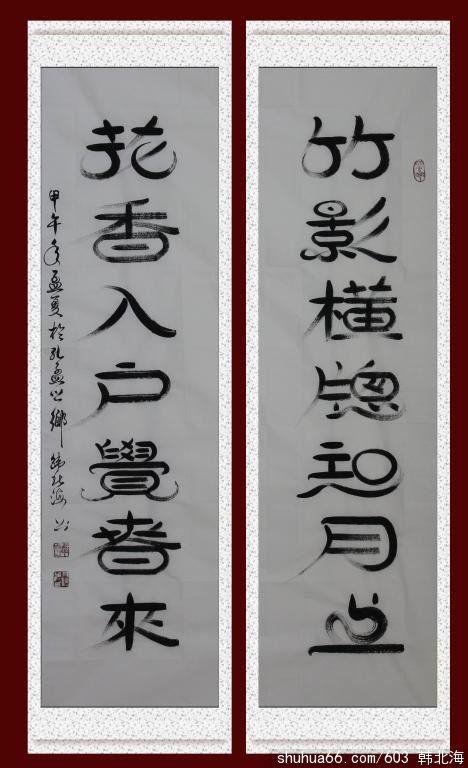 竹影橫牕知月上
花香入户覺春來
甲午年孟夏於孔孟之鄉 韩北海
shuhua66.com/603 韩北海